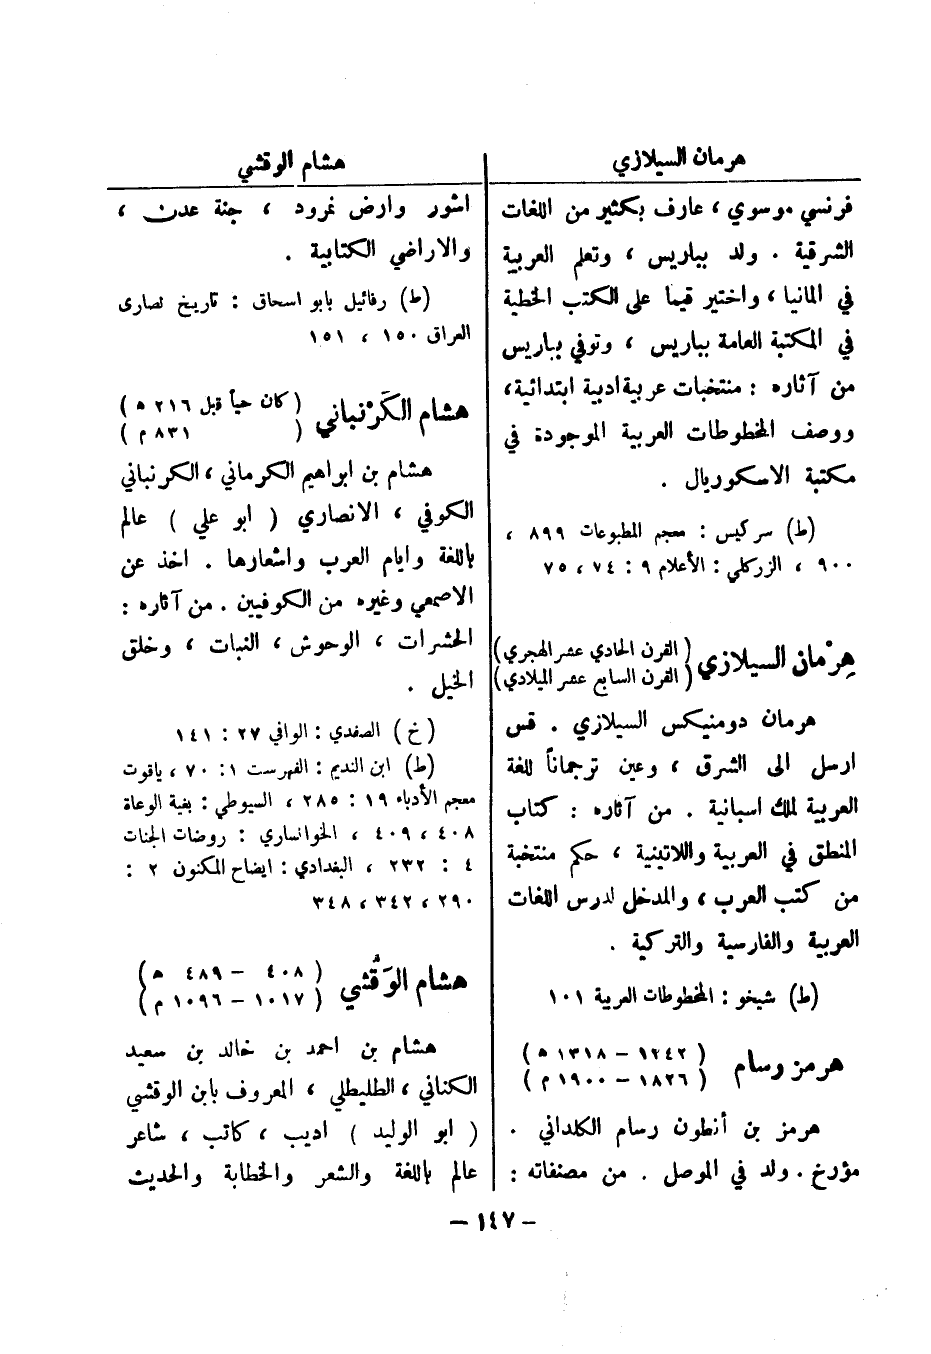 هرمان السيلازي
فرنسي موسوي ، عارف بكثير من اللغات
الشرقية . ولد بباريس ، وتعلم العربية
في المانيا ، واختير قيما على الكتب الخطية
في المكتبة العامة بباريس ، وتوفي بباريس
من آثاره : منتخبات عربية ادبية ابتدائية ،
ووصف المخطوطات العربية الموجودة في
مكتبة الاسكوريال .
(ط) سركيس : معجم المطبوعات ٨٩٩ ،
٩٠٠ ، الزركلي : الأعلام ٩ : ٧٤ ، ٧٥
هِرْمان السيلازي (القرن الحادي عشر الهجري)
(القرن السابع عشر الميلادي)
هرمان دومنيكس السيلازي . قس
ارسل الى الشرق ، وعين ترجماناً للغة
العربية لملك اسبانية . من آثاره : كتاب
المنطق في العربية واللاتينية ، حكم منتخبة
من كتب العرب ، والمدخل لدرس اللغات
العربية والفارسية والتركية .
(ط) شيخو : المخطوطات العربية ١٠١
هرمز رسام (١٢٤٢ – ١٣١٨ ه)
(١٨٢٦ – ١٩٠٠ م)
هرمز بن أنطون رسام الكلداني .
مؤرخ . ولد في الموصل . من مصنفاته :
هشام الوقشي
اشور وارض نمرود ، جنة عدن ،
والاراضي الكتابية .
(ط) رفائيل بابو اسحاق : تاريخ نصارى
العراق ١٥٠ ، ١٥١
هشام الكَرْنباني (كان حياً قبل ٢١٦ ه)
(٨٣١ م)
هشام بن ابراهيم الكرماني ، الكرنباني
الكوفي ، الانصاري ( ابو علي ) عالم
باللغة وايام العرب واشعارها . اخذ عن
الاصمعي وغيره من الكوفيين . من آثاره :
الحشرات ، الوحوش ، النبات ، وخلق
الخيل .
(خ) الصفدي : الوافي ٢٧ : ١٤١
(ط) ابن النديم : الفهرست ١ : ٧٠ ، ياقوت
معجم الأدباء ١٩ : ٢٨٥ ، السيوطي : بغية الوعاة
٤٠٨ ، ٤٠٩ ، الخوانساري : روضات الجنات
٤ : ٢٣٢ ، البغدادي : ايضاح المكنون ٢ :
٢٩٠ ، ٣٤٢ ، ٣٤٨
هشام الوَقَّشي (٤٠٨ – ٤٨٩ ه)
(١٠١٧ – ١٠٩٦ م)
هشام بن احمد بن خالد بن سعيد
الكناني ، الطليطلي ، المعروف بابن الوقشي
( ابو الوليد ) اديب ، كاتب ، شاعر
عالم باللغة والشعر والخطابة والحديث
– ١٤٧ –